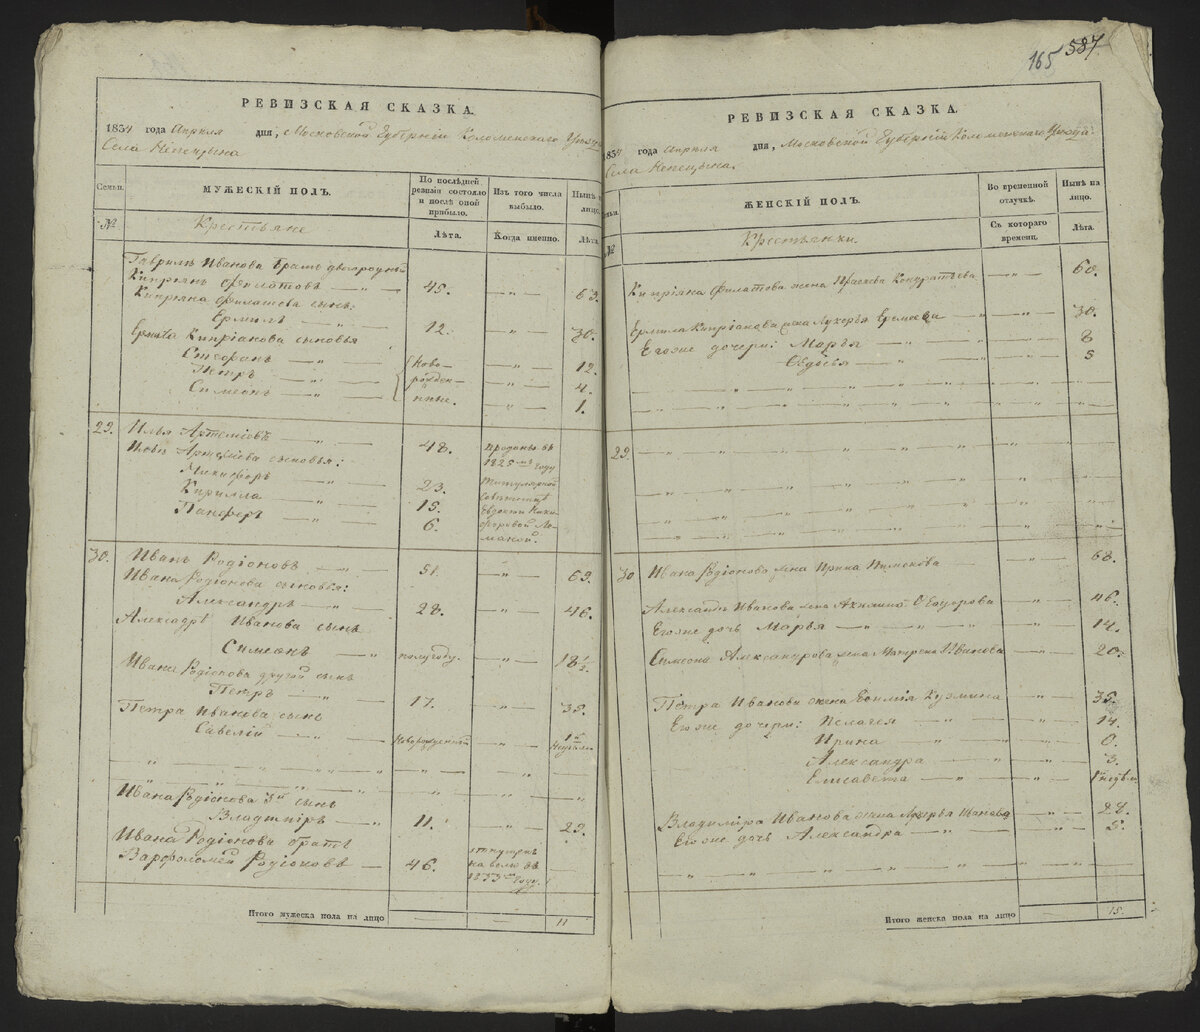 РЕВИЗСКАЯ СКАЗКА.
1834 года Апреля дня, Московской Губерніи Коломенскаго Уезда
Села Непецына
Семьи.
МУЖЕСКІЙ ПОЛЪ.
По послѣдней ревизіи состояло и послѣ оной прибыло.
Изъ того числа выбыло.
Нынѣ на лицо.
№
Крестьяне
Лѣта.
Когда именно.
Лѣта.
Гаврилы Иванова братъ двоюродный
Кипріянъ Филатовъ 45. 63.
Кипріяна Филатова сынъ:
Ермилъ 12. 30.
Ермила Кипріанова сыновья
Стефанъ Ново- 12.
Петръ рожден- 4.
Симеонъ ные. 1.
29. Илья Артеміовъ 48. проданы въ
Ильи Артеміова сыновья: 1825мъ году
Никифоръ 23. титулярной
Кирилла 15. совѣтницѣ
Панферъ 6. Евдокіи Ники-
форовой
30. Иванъ Родіоновъ 51. 69.
Ивана Родіонова сыновья:
Александръ 28. 46.
Александръ Иванова сынъ
Симеонъ полугоду. 18 1/2.
Ивана Родіонова другой сынъ
Петръ 17. 35.
Петра Иванова сынъ
Савелій Новорожденный 1й недѣли
Ивана Родіонова 3й сынъ
Владимiръ 11. 29.
Ивана Родіонова братъ
Варфоломей Родіоновъ 46. отпущенъ
на волю въ
1833мъ году.
Итого мужеска пола на лицо 11
165 587
РЕВИЗСКАЯ СКАЗКА.
1834 года Апреля дня, Московской Губерніи Коломенскаго Уезда
Села Непецына.
Семьи.
ЖЕНСКІЙ ПОЛЪ.
Во временной отлучкѣ.
Нынѣ на лицо.
№
Крестьянки.
Съ котораго времени.
Лѣта.
Кипріяна Филатова жена Прасковья Кондратьева 60.
Ермила Кипріанова жена Лукерья Еремеева 30.
Егоже дочери: Марья 8
Евдокья 5
29.
30 Ивана Родіонова жена Ирина 68.
Александръ Иванова жена Акилина Феодорова 46.
Егоже дочь Марья 14.
Симеона Александрова жена Матрена Иванова 20.
Петра Иванова жена Евфимія Кузмина 35.
Егоже дочери: Пелагея 14.
Ирина
Александра 3.
Елисавета 1й недѣли
Владиміра Иванова жена Лукерья Иванова 28.
Егоже дочь Александра 5.
Итого женска пола на лицо 15.